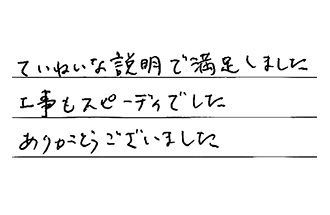 ていねいな説明で満足しました
工事もスピーディでした
ありがとうございました